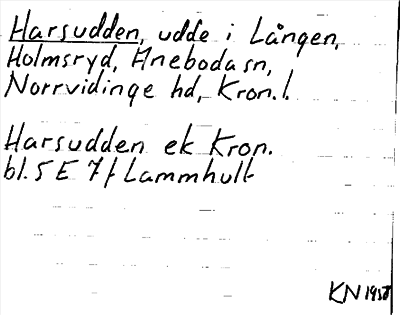 Harsudden, udde i Lången,
Holmsryd, Anebodasn,
Norrvidinge hd, Kron.l.
Harsudden ek Kron.
bl. 5 E 7f Lammhult
KN 1958